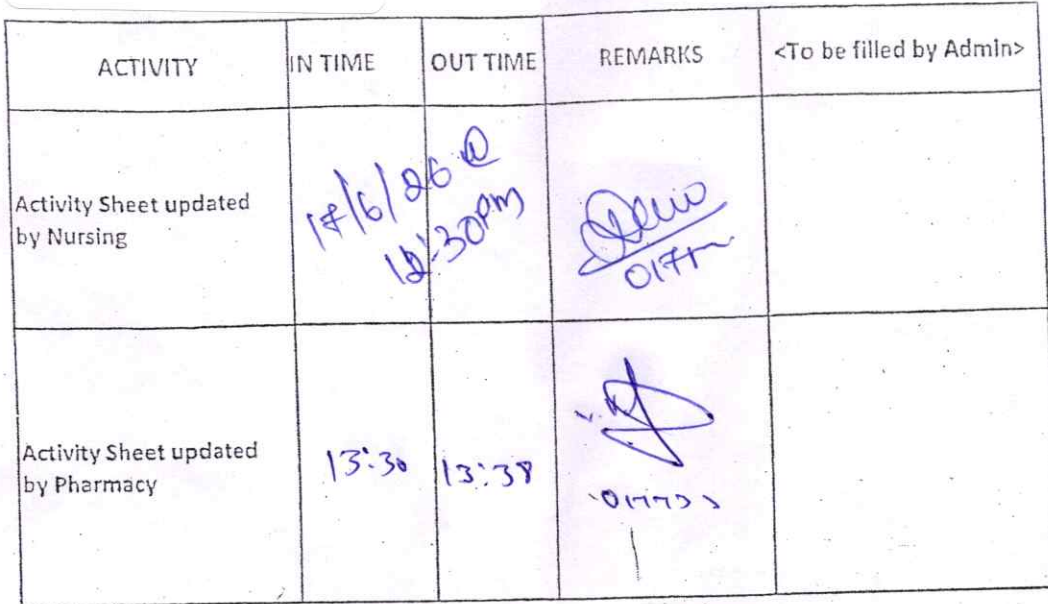 ACTIVITY IN TIME OUT TIME REMARKS <To be filled by Admin>
Activity Sheet updated
by Nursing
17/6/26 @
12:30pm
Activity Sheet updated
by Pharmacy
13:30 13:38